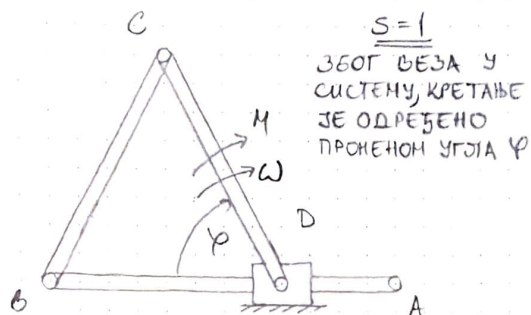 C
S = 1
ЗБОГ ВЕЗА У
СИСТЕМУ, КРЕТАЊЕ
ЈЕ ОДРЕЂЕНО
ПРОМЕНОМ УГЛА φ
M
ω
φ
D
B
A